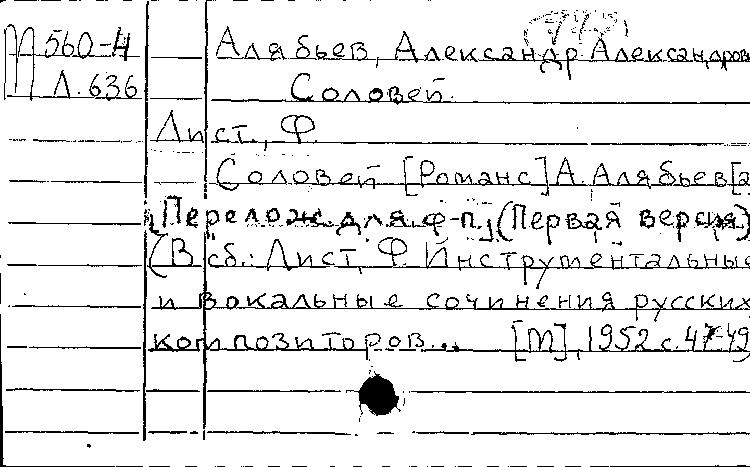 М 560-4 Алябьев, Александр Александров
Л. 636 Соловей.
Лист, Ф.
Соловей [Романс] А. Алябьев[а
Перелож. для ф-п., (Первая версия)
(В сб.: Лист, Ф. Инструментальные
и вокальные сочинения русских
композиторов... [М], 1952 с. 47-49